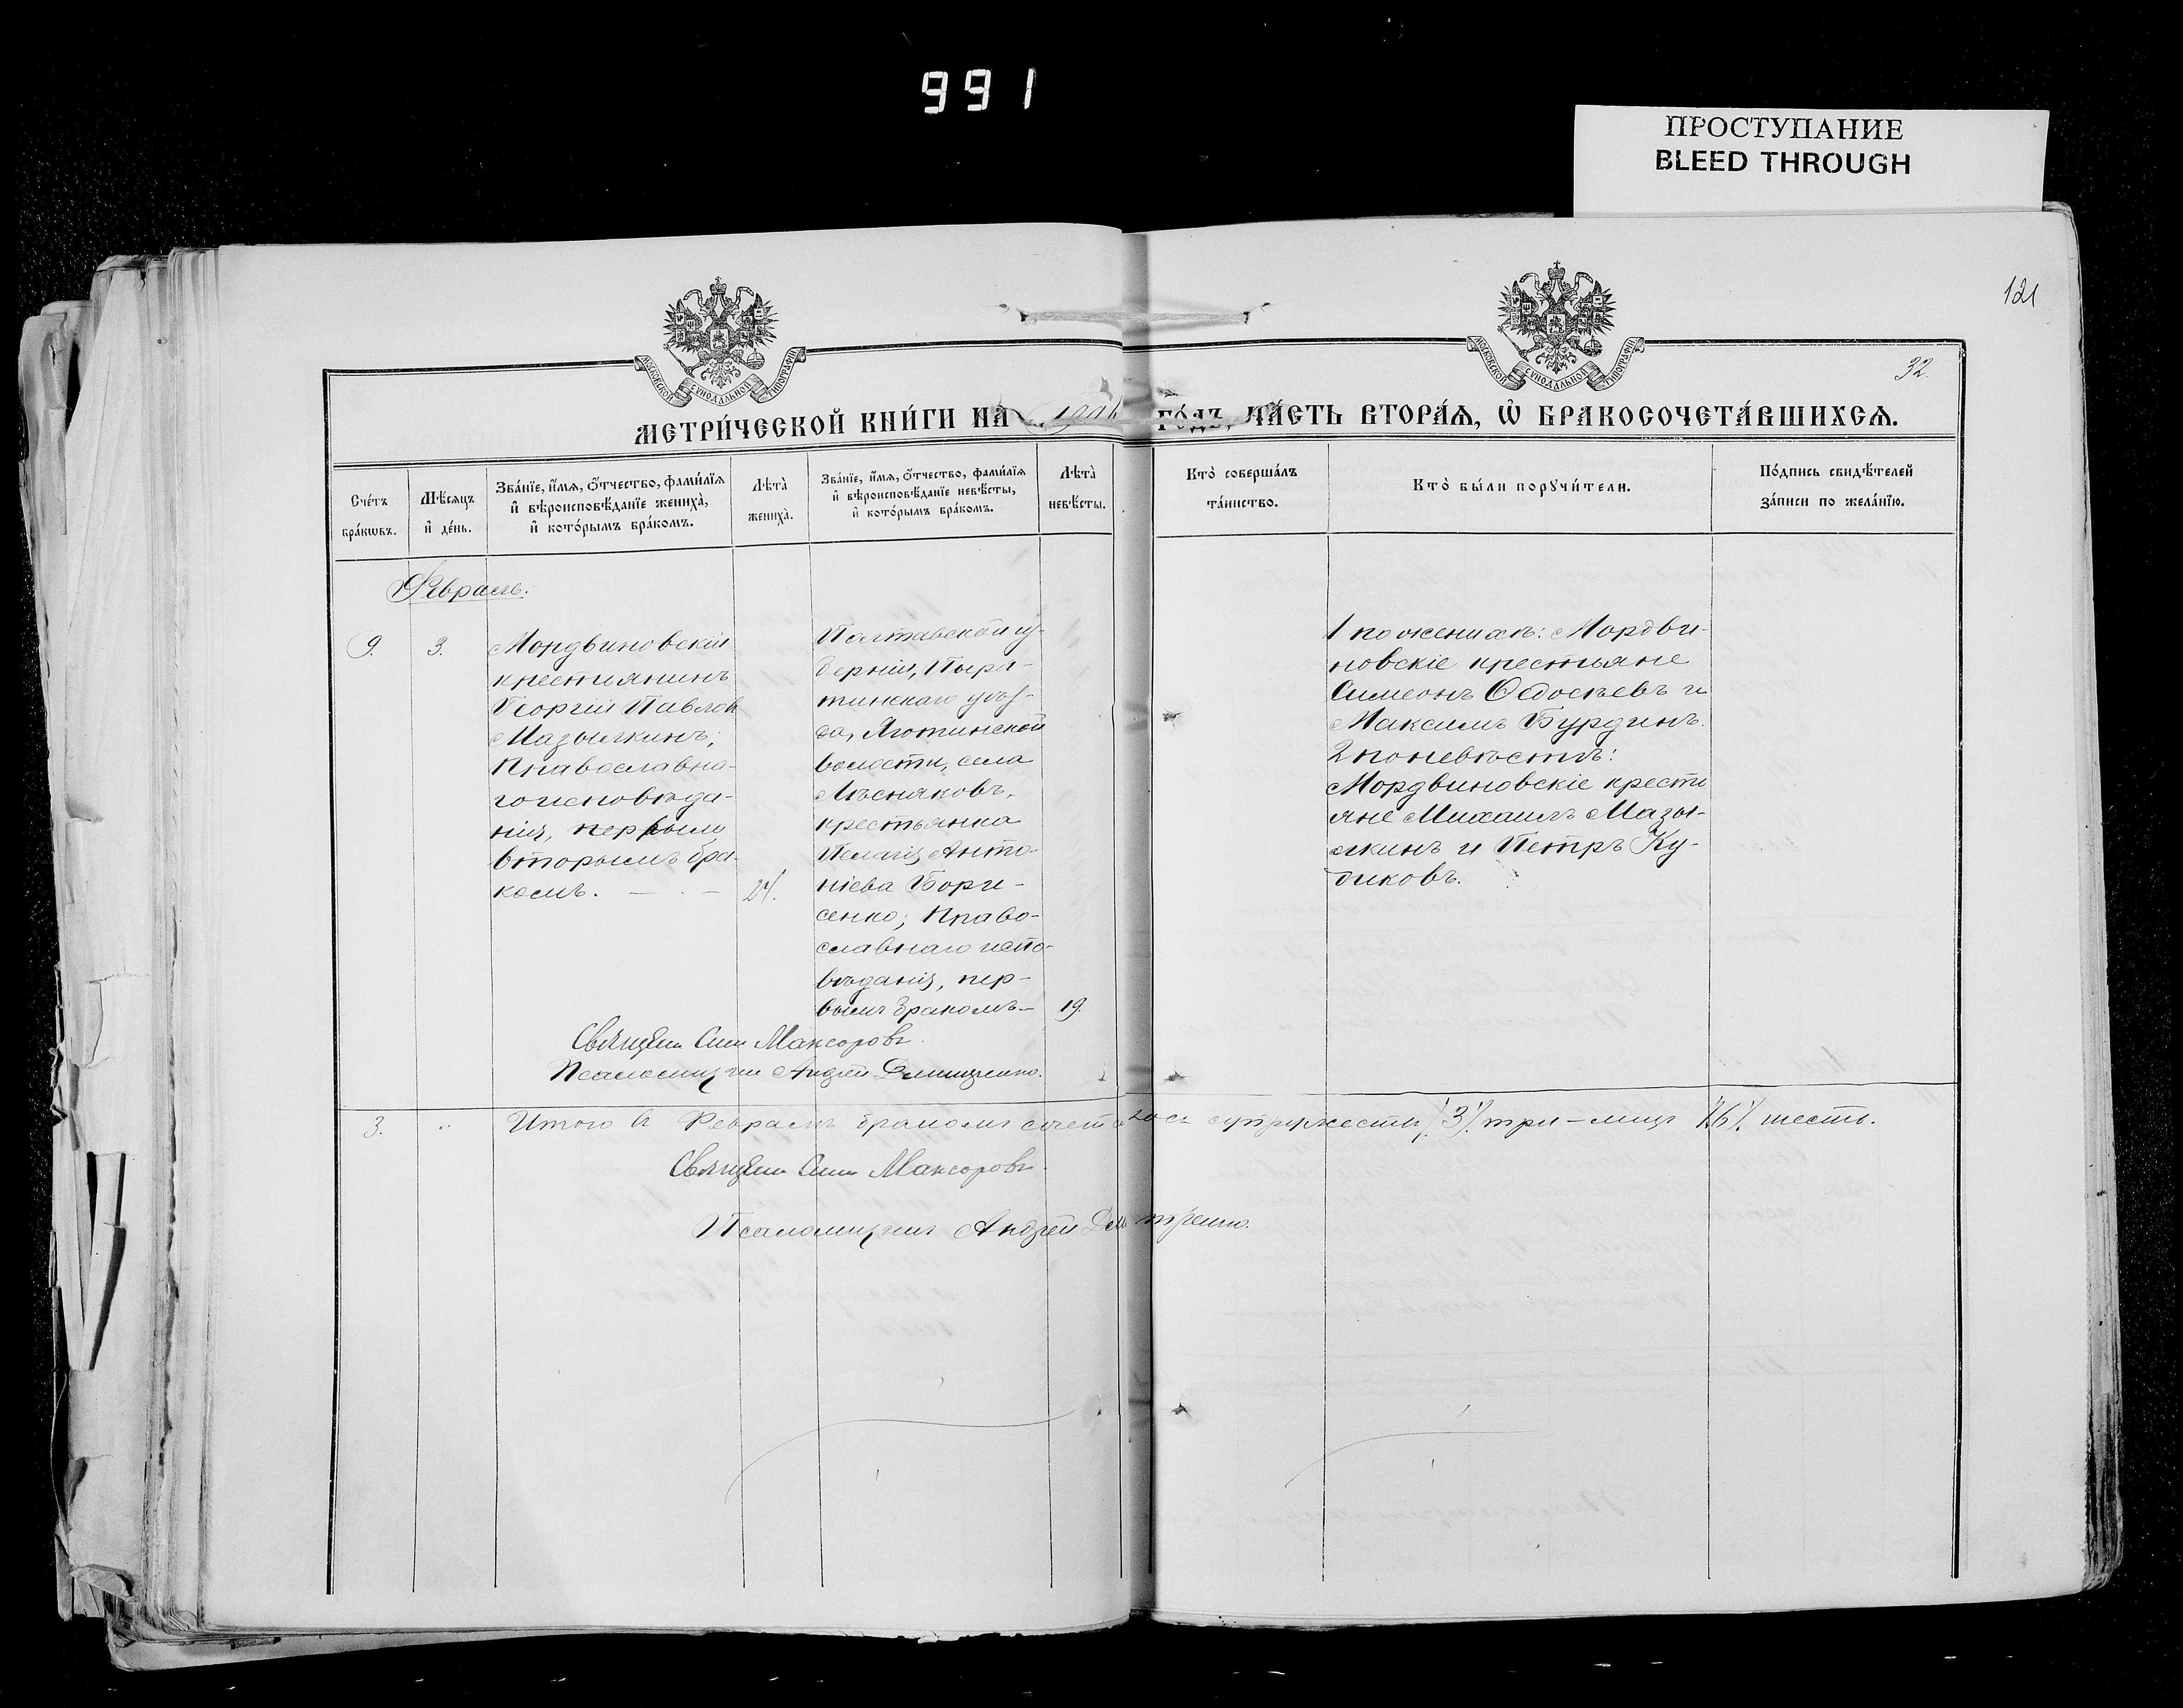 991
ПРОСТУПАНИЕ
BLEED THROUGH
121
32.
МОСКОВСКОЙ СѴНОДАЛЬНОЙ ТИПОГРАФІИ
МОСКОВСКОЙ СѴНОДАЛЬНОЙ ТИПОГРАФІИ
МЕТРИ́ЧЕСКОЙ КНИ́ГИ НА ГО́ДЪ, ЧА́СТЬ ВТОРА́Ѧ, Ѡ҆ БРАКОСОЧЕТА́ВШИХСѦ.
Сче́тъ бра́кѡвъ.
Мѣ́сяцъ и҆ де́нь.
Зва́нїе, и҆́мѧ, ѻ҆́тчество, фами́лїѧ
и҆ вѣроисповѣ́данїе жениха̀,
и҆ кото́рымъ бра́комъ.
Лѣта̀ жениха̀.
Зва́нїе, и҆́мѧ, ѻ҆́тчество, фами́лїѧ
и҆ вѣроисповѣ́данїе невѣ́сты,
и҆ кото́рымъ бра́комъ.
Лѣта̀ невѣ́сты.
Кто̀ соверша́лъ та́инство.
Кто̀ бы́ли порꙋчи́тели.
По́дпись свидѣ́телей за́писи по жела́нїю.
Февраль.
9.
3.
Мордвиновскій
крестьянинъ
Георгій Павлов
Мазылкинъ,
Православна-
го исповѣда-
нія, первым
вторымъ бра-
комъ.
24.
Полтавской гу-
берніи, Пыря-
тинскаго уѣз-
да, Яготинской
волости, села
Лѣсняковъ,
крестьянка
Пелагія Анто-
ніева Бори-
сенко, Право-
славнаго испо-
вѣданія, пер-
вымъ бракомъ
19.
1 по женихѣ: Мордви-
новскіе крестьяне
Симеонъ Ѳдосѣевъ и
Максимъ Бурдинъ.
2 по невѣстѣ:
Мордвиновскіе крестья
яне Михаилъ Мазы-
лкинъ и Петръ Ку-
диковъ.
Священ. Сим Максоровъ.
Псаломщикъ Андрей
3.
Итого въ Февралѣ бракомъ сочеталось супружествъ /3/ три - лицъ /6/. шесть.
Священ. Сим Максоровъ
Псаломщикъ Андрей